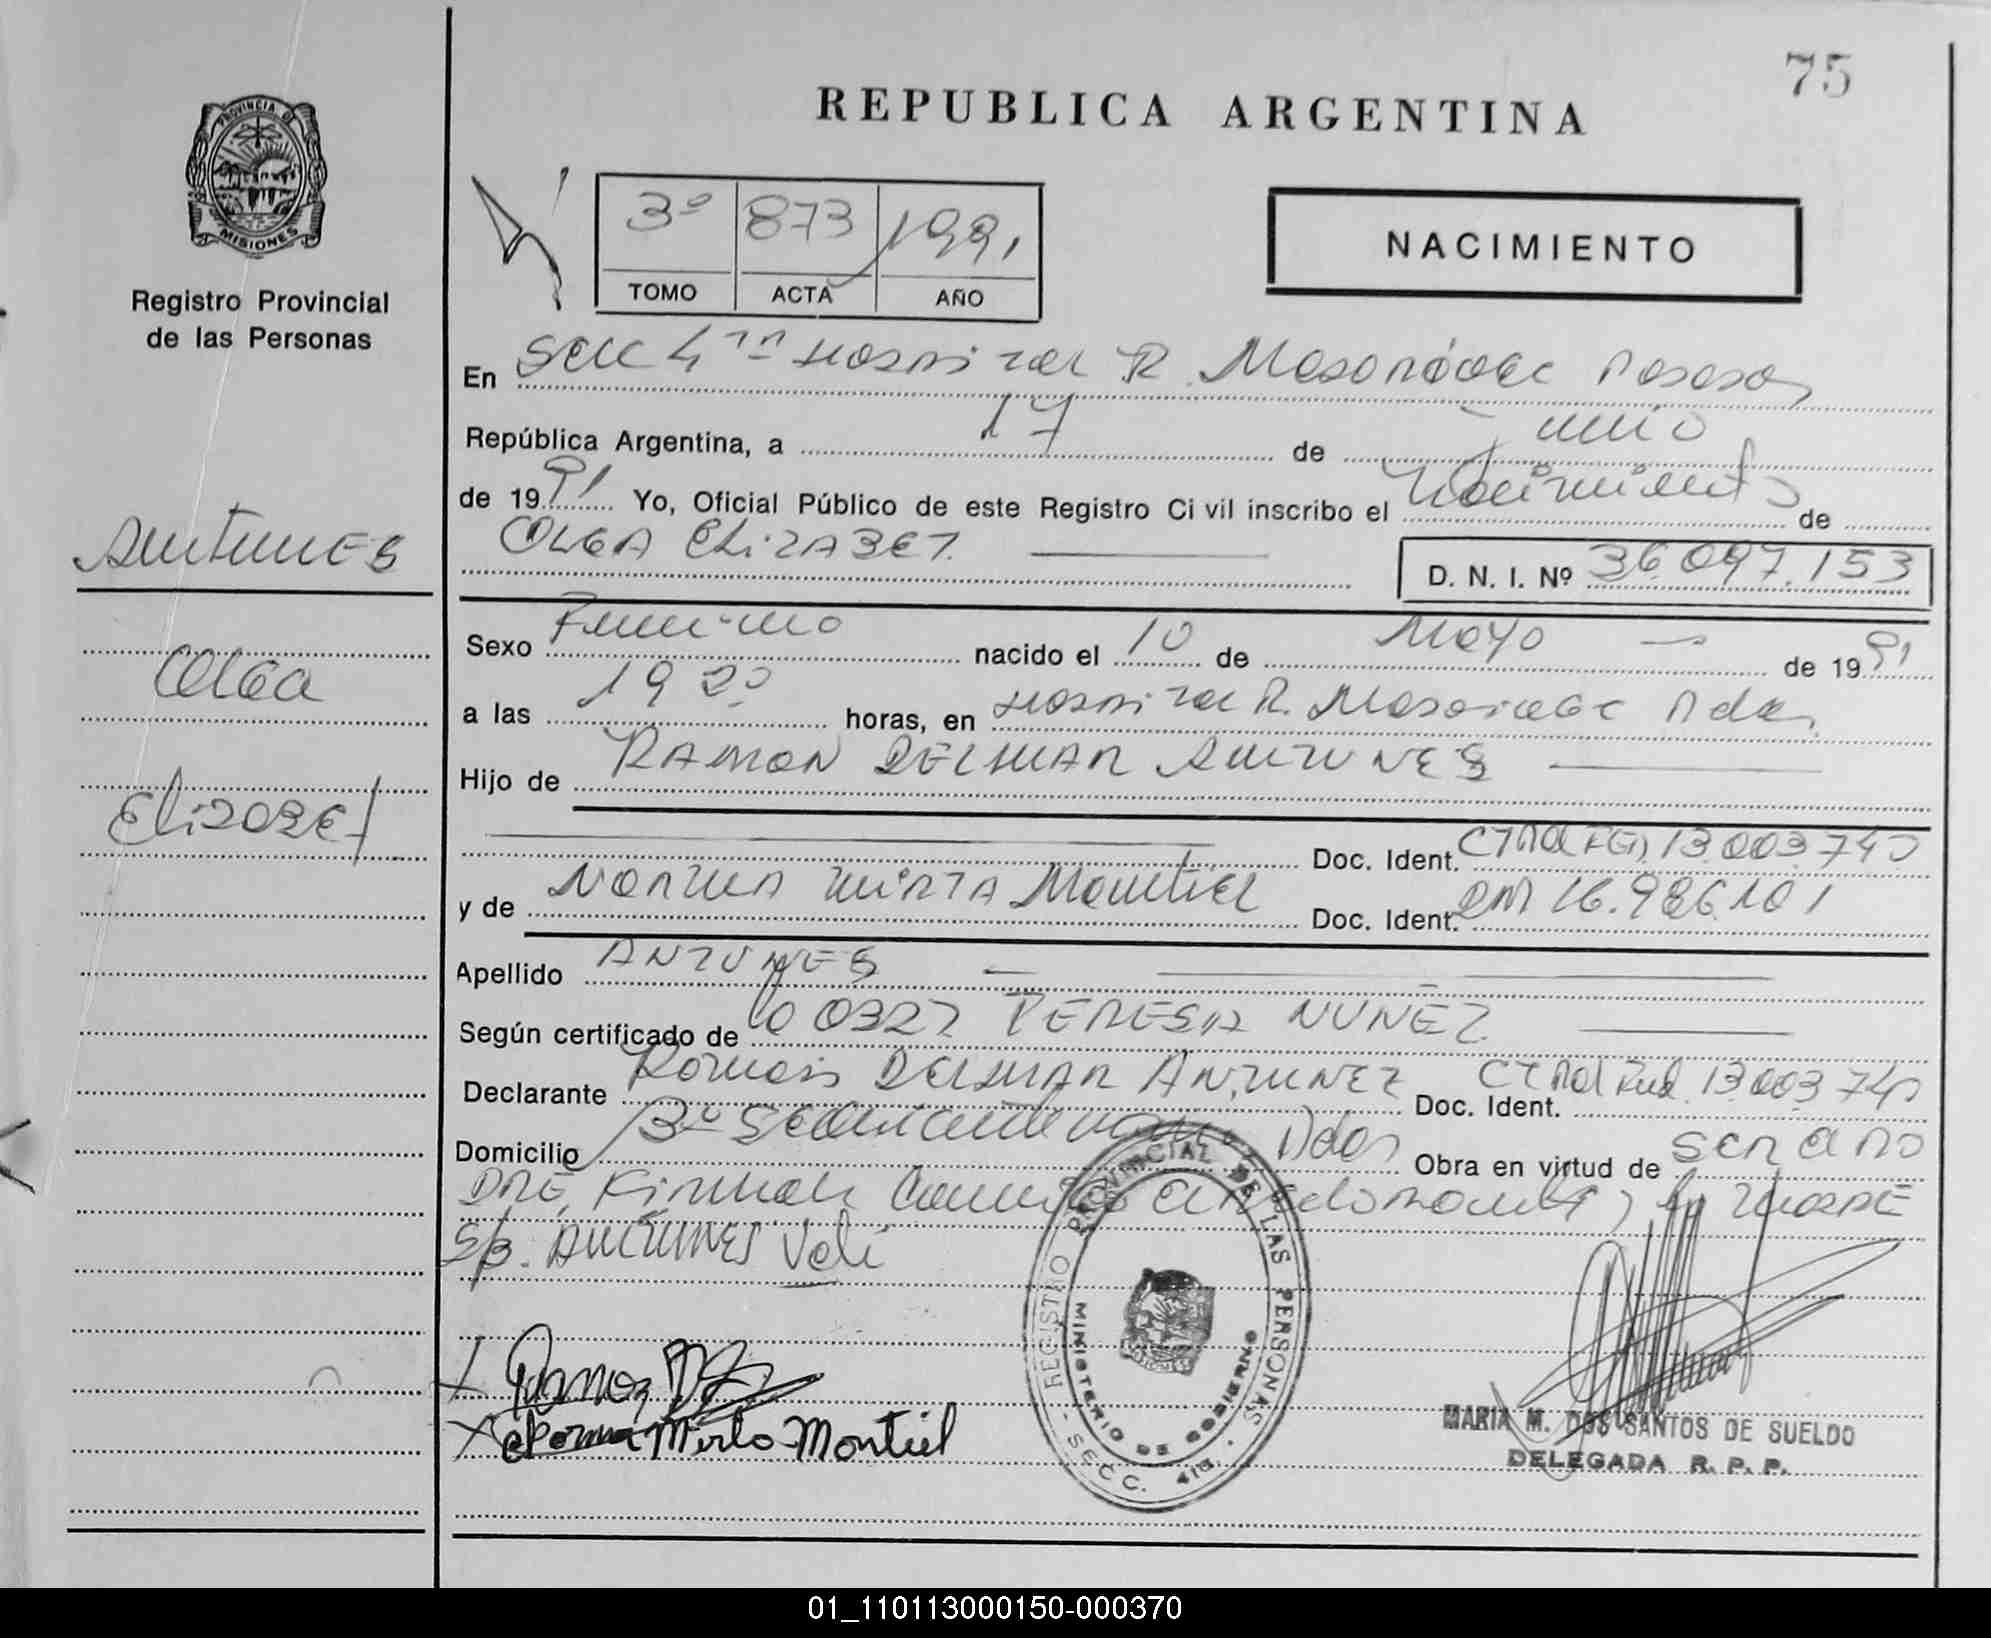 75
REPUBLICA ARGENTINA
PROVINCIA DE
MISIONES
Registro Provincial
de las Personas
3º 873 1991
TOMO ACTA AÑO
NACIMIENTO
En Secc 4ta Hospital R. Madariaga Posadas
República Argentina, a 17 de Junio
de 1991 Yo, Oficial Público de este Registro Civil inscribo el Nacimiento de
OLGA ELIZABET.
D. N. I. Nº 36.097.153
Antunes
Olga
Elizabet
Sexo Femenino nacido el 10 de Mayo de 1991
a las 19 20 horas, en Hospital R. Madariaga Pdas,
Hijo de RAMON DELMAR ANTUNES
Doc. Ident. 13.003.740
y de NORMA MIRTA Montiel Doc. Ident. DNI 16.986.101
Apellido ANTUNES
Según certificado de 00327 TERESA NUÑEZ
Declarante Ramon DELMAR ANTUNEZ Doc. Ident. 13.003.740
Domicilio Pdas Obra en virtud de SER EL PA
DRE, Firman la MADRE
S/B. ANTUNES Vale
Norma Mirta Montiel
REGISTRO PROVINCIAL DE LAS PERSONAS
MINISTERIO DE GOBIERNO
- SECC. 4ta. -
MISIONES
MARIA M. DOS SANTOS DE SUELDO
DELEGADA R. P. P.
01_110113000150-000370